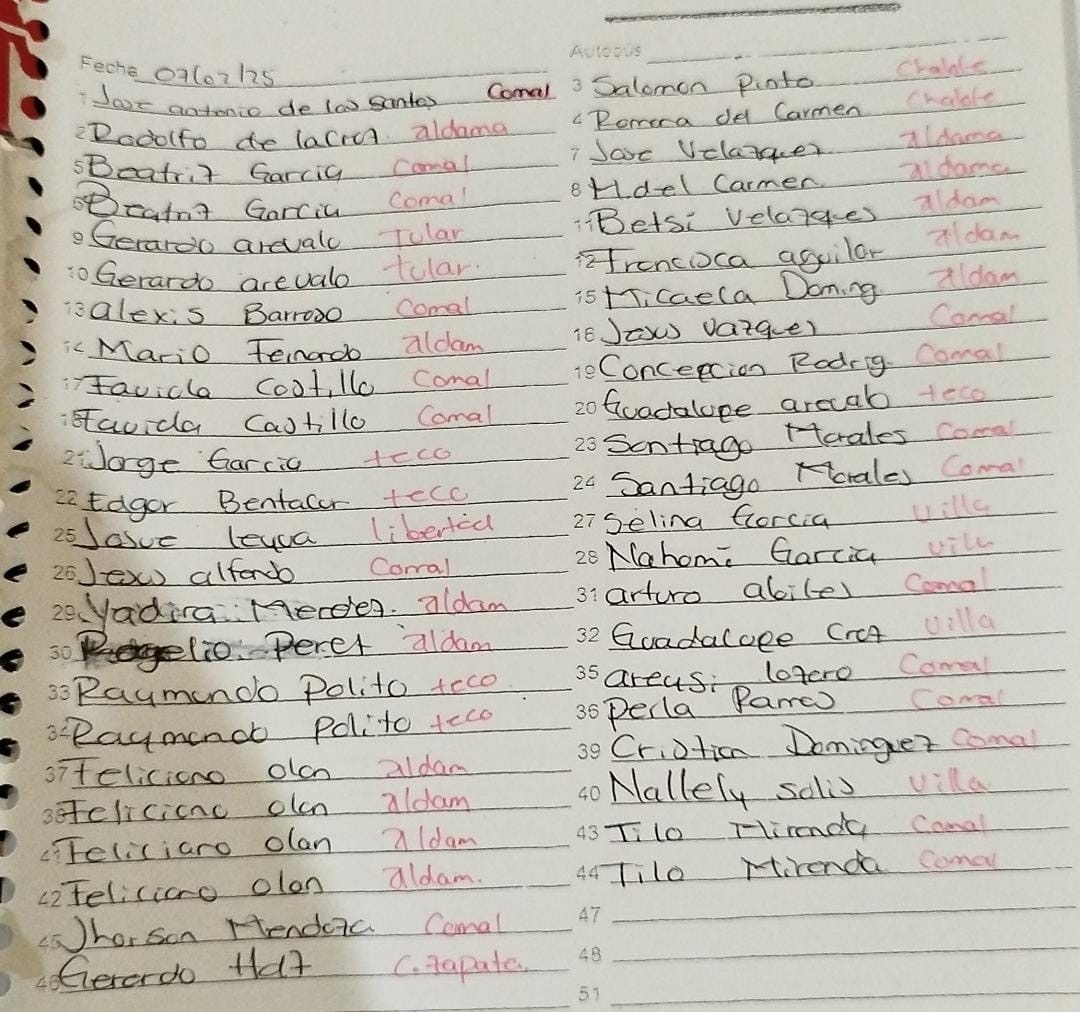 Fecha 07/02/25
Autobús
1 Jose antonio de los santos Comal
2 Rodolfo de la Cruz. aldama
5 Beatriz Garcia Comal
6 Beatriz Garcia Comal
9 Gerardo arevalo Tular
10 Gerardo arevalo tular.
13 alexis Barroso Comal
14 Mario Fernando aldam
17 Faviola Castillo Comal
18 Favida Castillo Comal
21 Jorge Garcia teco
22 Edgar Bentacur teco
25 Josue leyva libertad
26 Jesus alfondo Comal
29 Yadira Mendez. aldam
30 Rogelio Perez aldam
33 Raymundo Polito teco
34 Raymundo Polito teco
37 Feliciano olan aldam
38 Feliciano olan aldam
41 Feliciano olan aldam
42 Feliciano olan aldam.
45 Jhorson Mendoza Comal
46 Gerardo Hdz C. zapata.
3 Salomon Pinto Chalate
4 Romera del Carmen Chalate
7 Jose Velazquez aldama
8 H.del Carmen. aldama
11 Betsi Velazques aldam
12 Francisca aguilar aldam
15 Micaela Doming. aldam
16 Jesus Vazquez Comal
19 Concepcion Rodrig. Comal
20 Guadalupe arevalo teco
23 Santiago Morales Comal
24 Santiago Morales Comal
27 Selina Garcia Villa
28 Nahomi Garcia Villa
31 arturo abiles Comal
32 Guadalupe Cruz Villa
35 areusi lozero Comal
36 Perla Ramos Comal
39 Cristian Dominguez Comal
40 Nallely solis Villa.
43 Tilo Miranda Comal
44 Tilo Miranda Comal
47
48
51